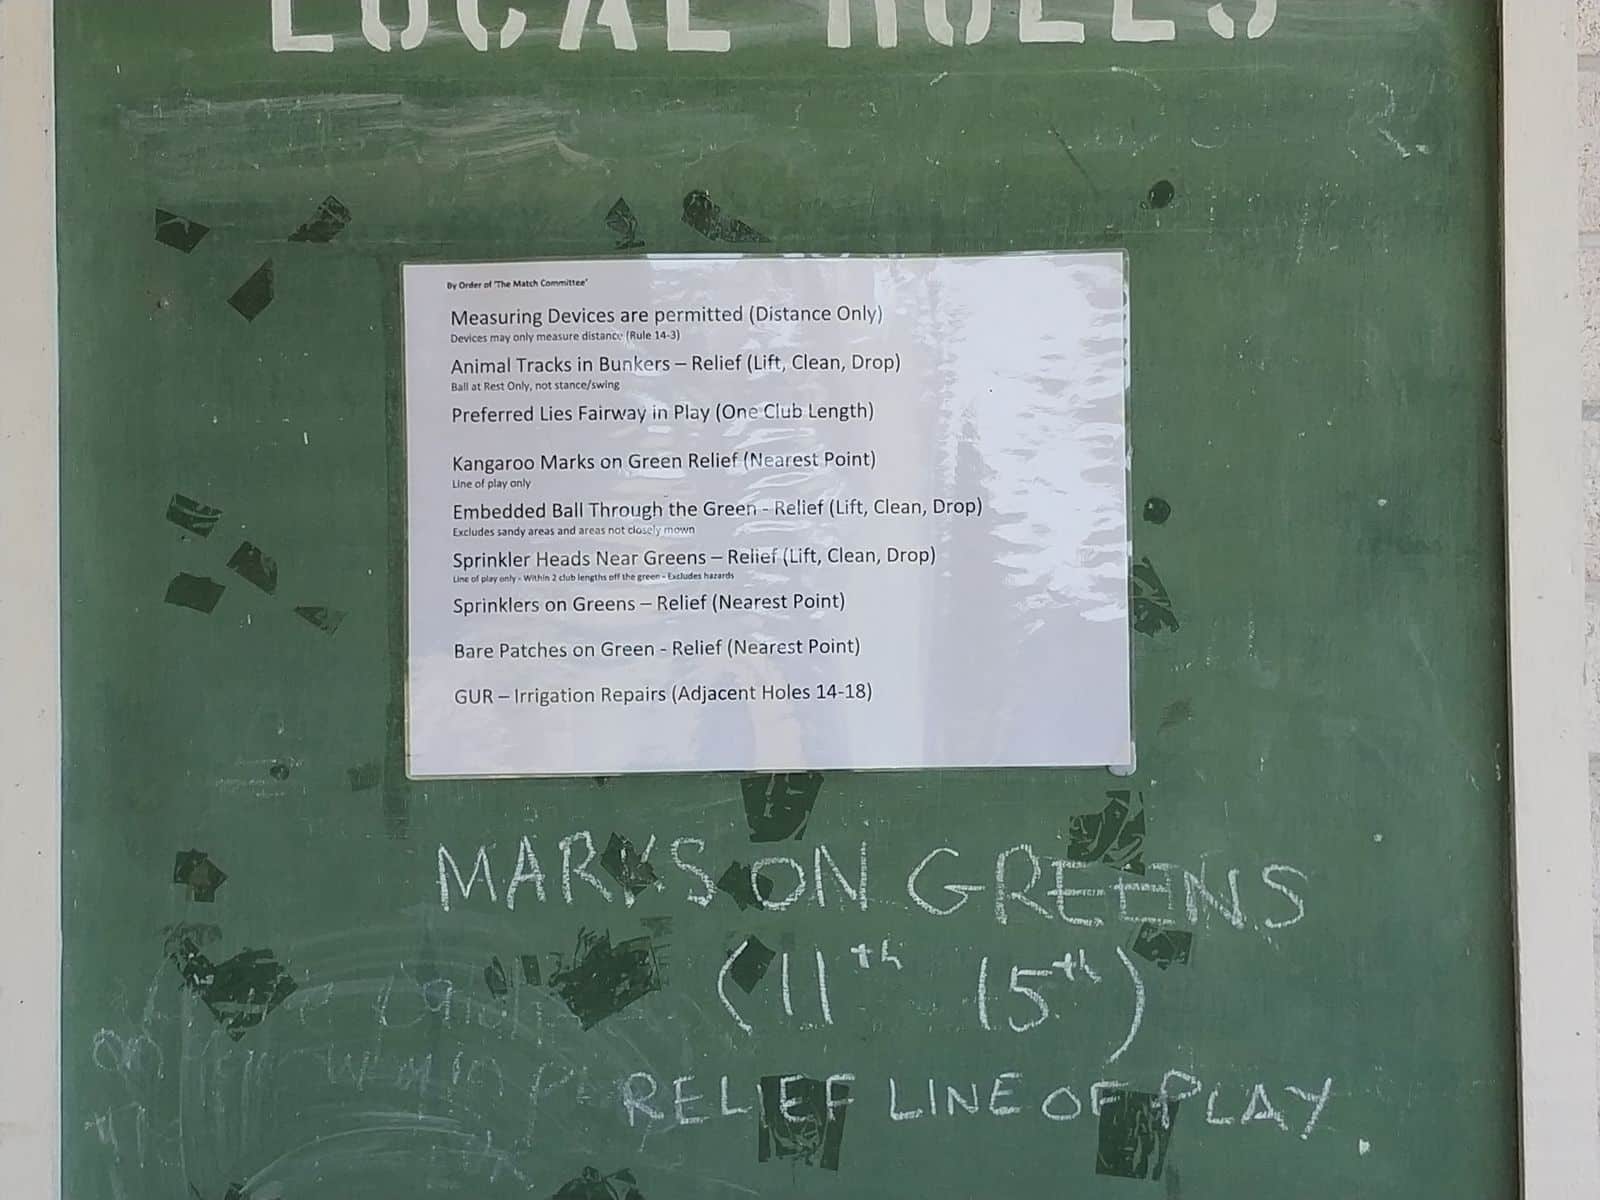 LOCAL RULES
By Order of 'The Match Committee'
Measuring Devices are permitted (Distance Only)
Devices may only measure distance (Rule 14-3)
Animal Tracks in Bunkers – Relief (Lift, Clean, Drop)
Ball at Rest Only, not stance/swing
Preferred Lies Fairway in Play (One Club Length)
Kangaroo Marks on Green Relief (Nearest Point)
Line of play only
Embedded Ball Through the Green - Relief (Lift, Clean, Drop)
Excludes sandy areas and areas not closely mown
Sprinkler Heads Near Greens – Relief (Lift, Clean, Drop)
Line of play only - Within 2 club lengths off the green - Excludes hazards
Sprinklers on Greens – Relief (Nearest Point)
Bare Patches on Green - Relief (Nearest Point)
GUR – Irrigation Repairs (Adjacent Holes 14-18)
MARKS ON GREENS
(11th 15th)
RELIEF LINE OF PLAY.